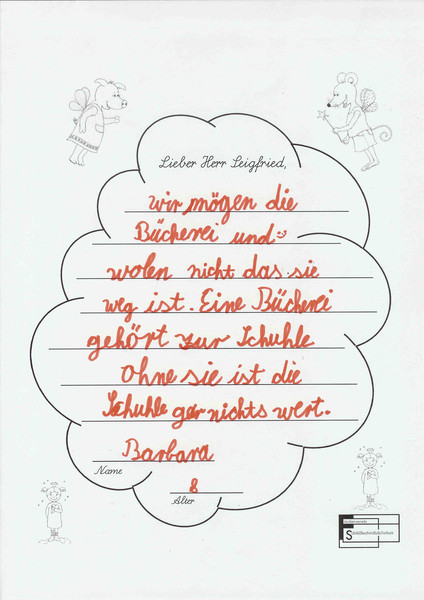 Lieber Herr Leigfried,
wir mögen die
Bücherei und
wolen nicht das sie
weg ist. Eine Bücherei
gehört zur Schuhle
ohne sie ist die
Schuhle gar nichts wert.
Barbara
Name
8
Alter